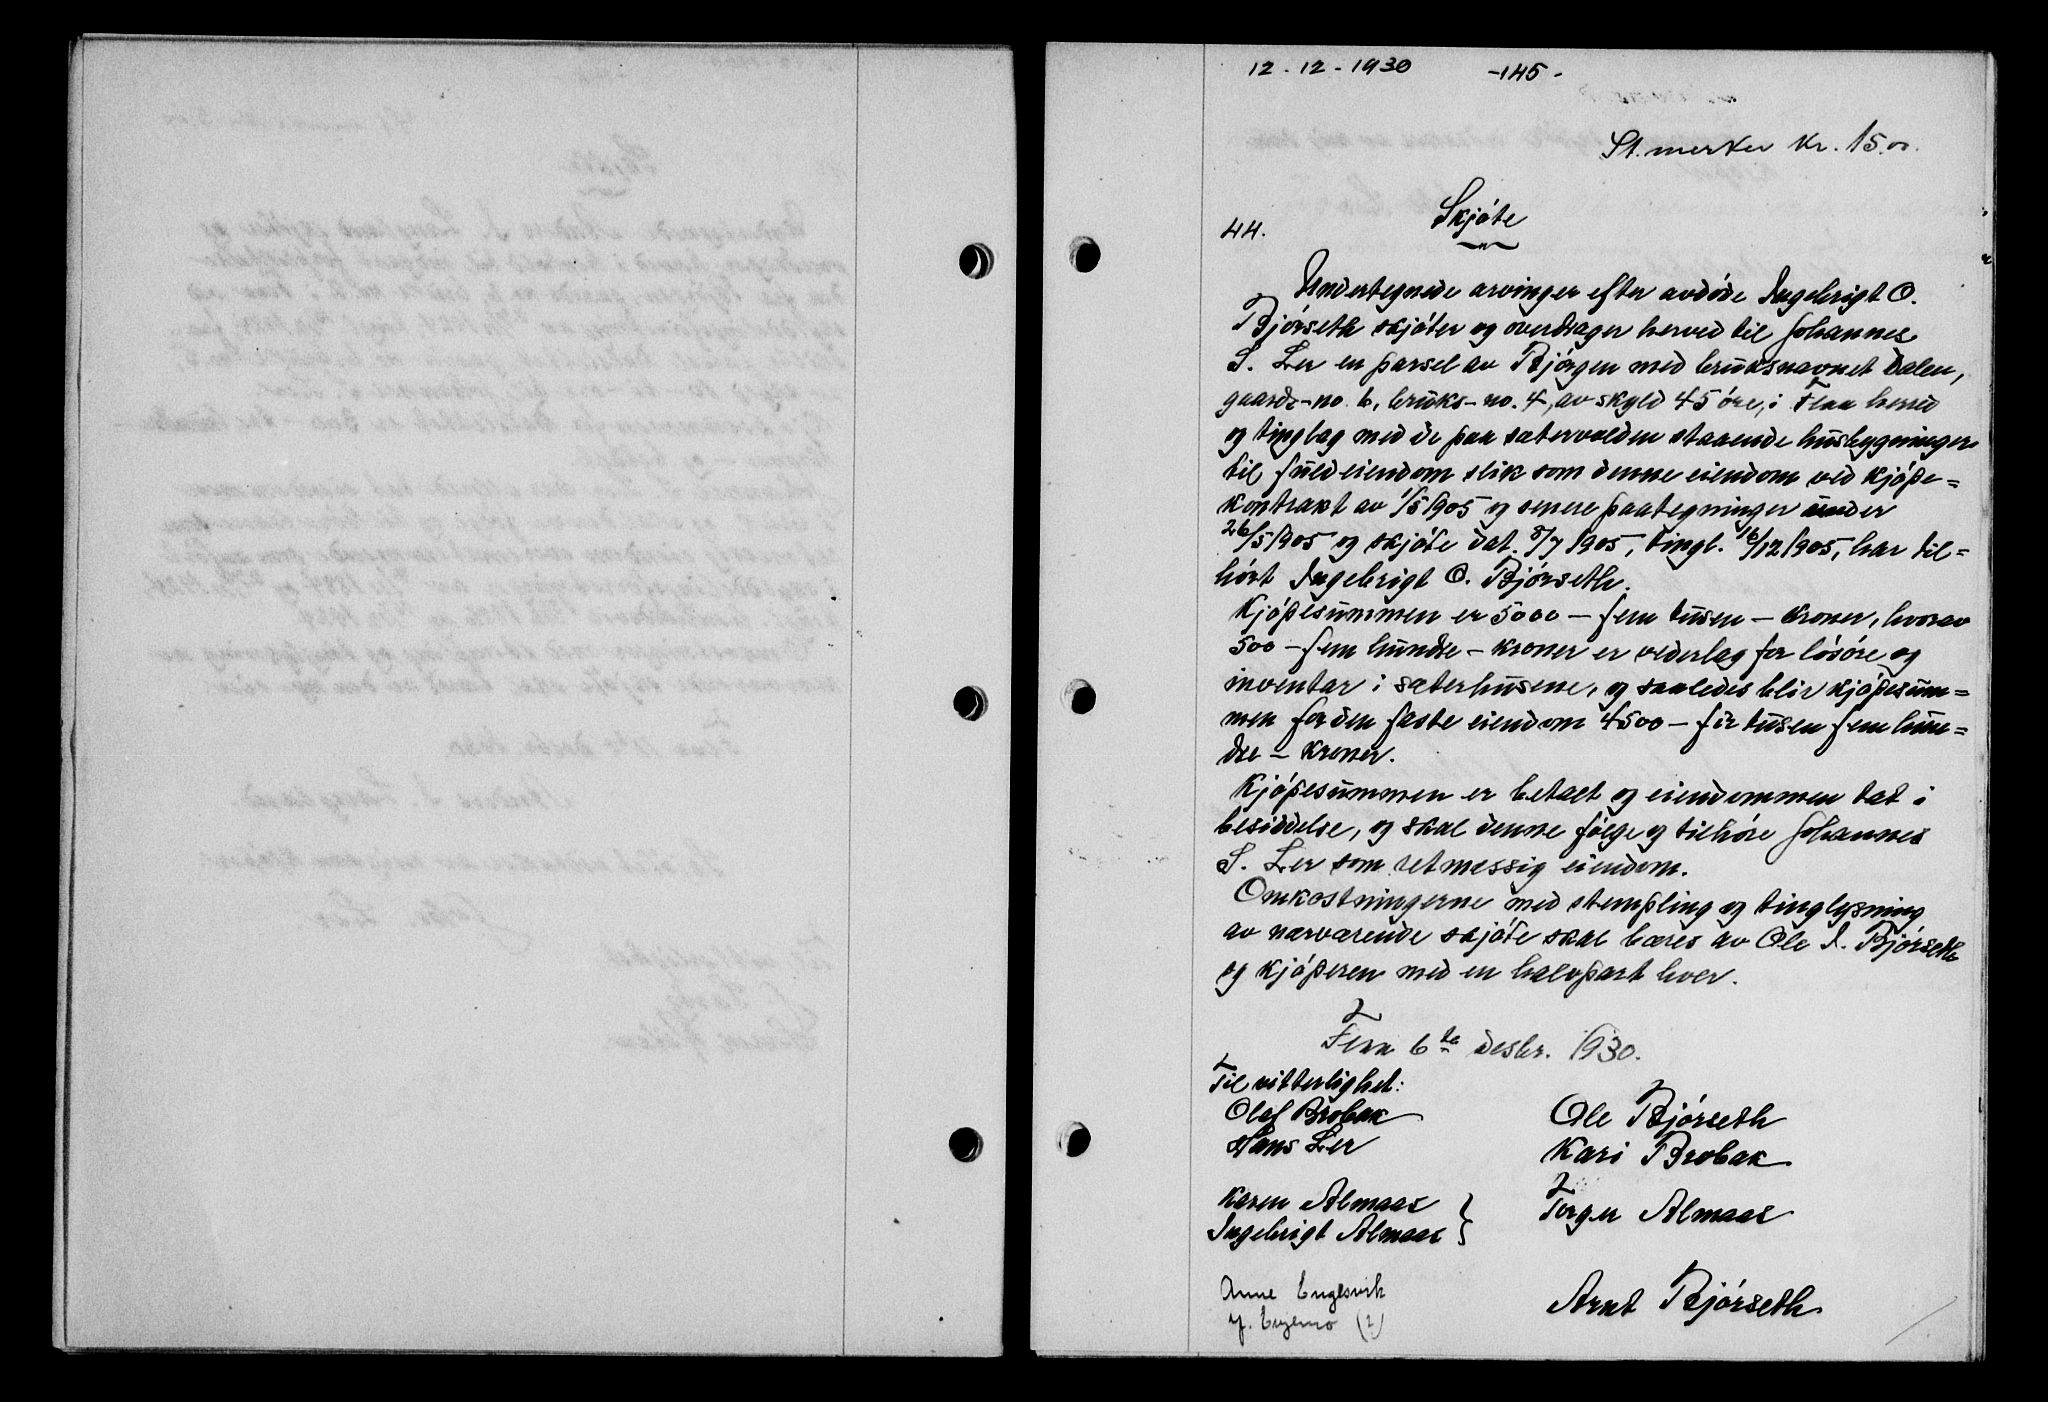 12 - 12 - 1930 -145-
St. merker kr. 15.00.
Skjöte
44.
Undertegnede arvinger efter avdöde Ingebrigt O.
Björseth skjöter og overdrager herved til Johannes
S. Ler en parsel av Björgen med bruksnavnet Dalen,
gaards-no. 6, bruks-no. 4, av skyld 45 öre, i Flaa herred
og tinglag med de paa sætervolden staaende husbygninger
til fuld eiendom slik som denne eiendom ved kjöpe=
kontrakt av 1/5 1905 og senere paategninger under
26/5 1905 og skjöte dat. 8/7 1905, tingl. 16/12 1905, har til=
hört Ingebrigt O. Björseth.
Kjöpesummen er 5000 - fem tusen - kroner, hvorav
500 - fem hundre - kroner er vederlag for lösöre og
inventar i sæterhusene, og saaledes blir kjöpesum=
men for den faste eiendom 4500 - fir tusen fem hun=
dre - kroner.
Kjöpesummen er betalt og eiendommen tat i
besiddelse, og skal denne fölge og tilhöre Johannes
S. Ler som retmessig eiendom.
Omkostningerne med stempling og tinglysning
av nærværende skjöte skal bæres av Ole I. Björseth
og kjöperen med en halvpart hver.
Flaa 6te desbr. 1930.
Til vitterlighet:
Olaf Brobak Ole Björseth
Hans Ler Kari Brobak
Karen Almaas } Torger Almaas
Ingebrigt Almaas
Anne Englsvik Arnt Björseth
(?)